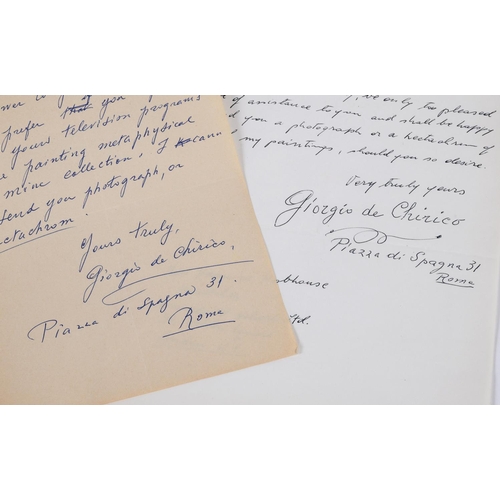 prefer that if you
yours television programs
painting metaphysical
mine collection. I cann
send your photograph, or
ectachrom.
Yours truly,
Giorgio de Chirico,
Piazza di Spagna 31.
Roma
only too pleased
of assistance to you and shall be happy
d you a photograph or a hectachrom of
my paintings, should you so desire.
Very truly yours
Giorgio de Chirico
Piazza di Spagna 31
Roma
bhouse
Ltd.